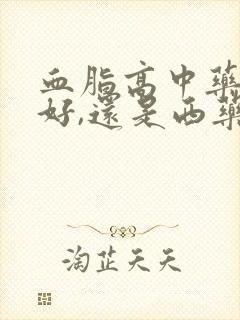 血脂高中藥
好,還是西藥
淘芷天天